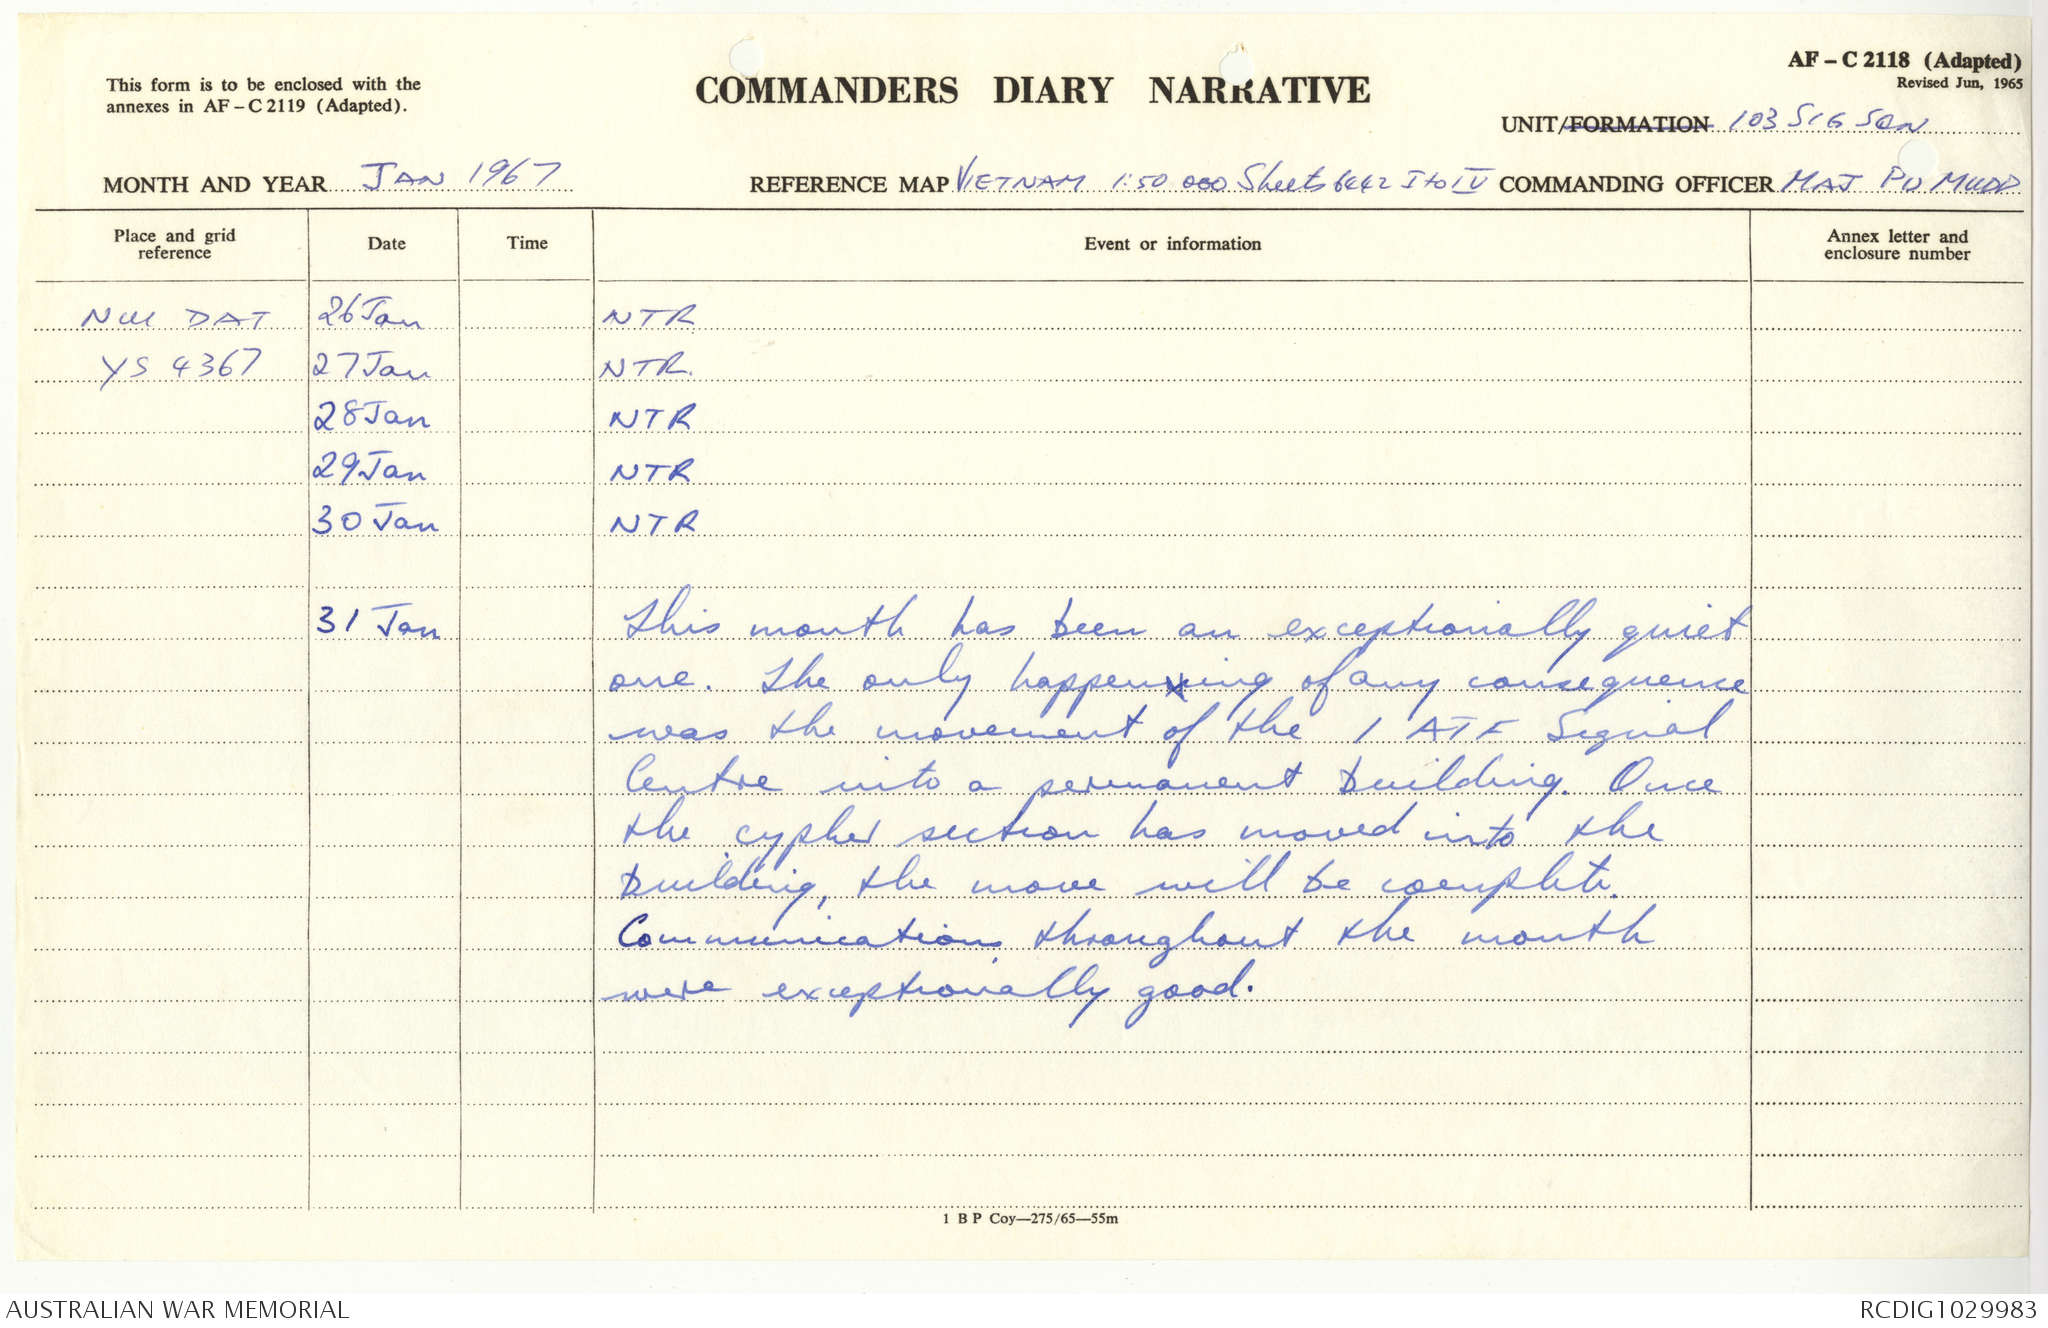 This form is to be enclosed with the
annexes in AF – C 2119 (Adapted).
COMMANDERS DIARY NARRATIVE
AF – C 2118 (Adapted)
Revised Jun, 1965
UNIT/FORMATION 103 SIG SQN
MONTH AND YEAR JAN 1967
REFERENCE MAP VIETNAM 1:50 000 Sheets 6442 I to IV
COMMANDING OFFICER MAJ P MUDD
Place and grid reference Date Time Event or information Annex letter and enclosure number
NUI DAT 26 Jan NTR
YS 4367 27 Jan NTR.
28 Jan NTR
29 Jan NTR
30 Jan NTR
31 Jan This month has been an exceptionally quiet
one. The only happening of any consequence
was the movement of the 1 ATF Signal
Centre into a permanent building. Once
the cypher section has moved into the
building, the move will be complete.
Communications throughout the month
were exceptionally good.
1 B P Coy—275/65—55m
AUSTRALIAN WAR MEMORIAL
RCDIG1029983